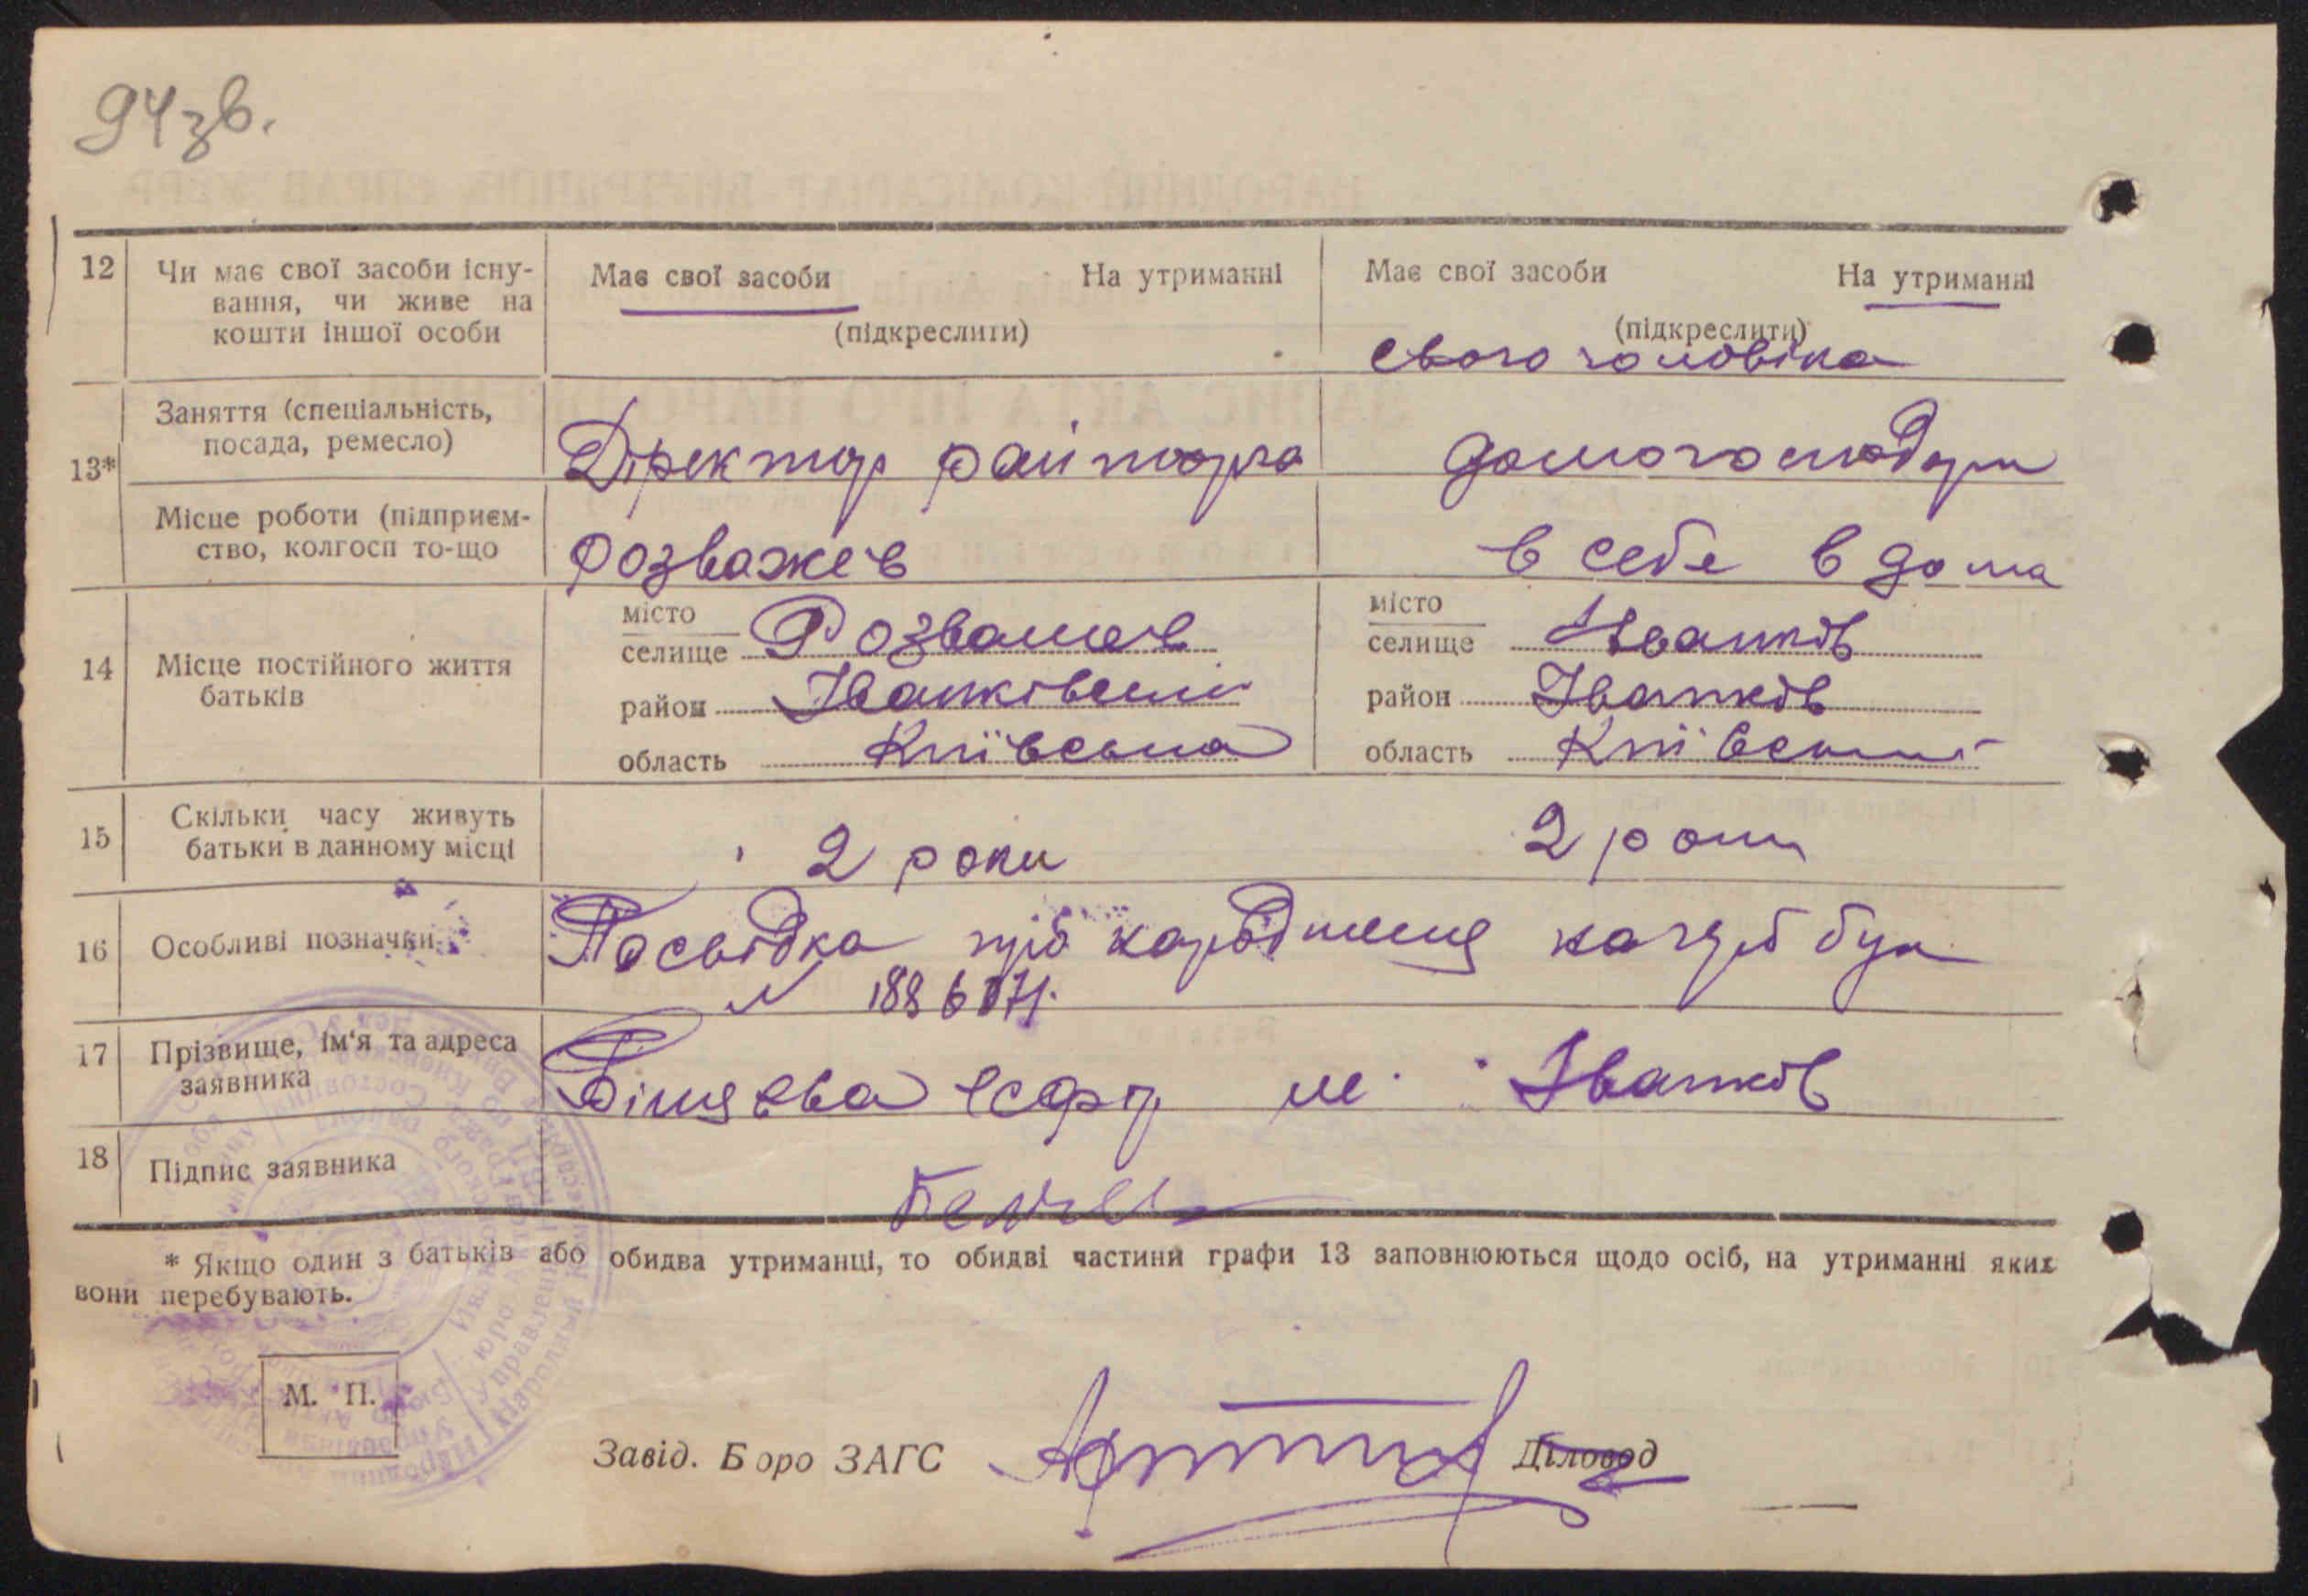 94 зв.
12 Чи має свої засоби існу-
вання, чи живе на
кошти іншої особи
Має свої засоби На утриманні
(підкреслити)
Має свої засоби На утриманні
(підкреслити)
свого чоловіка
13*
Заняття (спеціальність,
посада, ремесло)
Діректор райторга
домогосподарк
Місце роботи (підприєм-
ство, колгосп то-що
Розважев
в себе в дома
14 Місце постійного життя
батьків
місто
селище Розважев
район Іванківський
область Київська
місто
селище Іванків
район Іванків
область Київський
15 Скільки часу живуть
батьки в данному місці
2 роки
2 роки
16 Особливі позначки
Посвідка про народження
N 188607
17 Прізвище, ім'я та адреса
заявника
м. Іванків
18 Підпис заявника
* Якщо один з батьків або обидва утриманці, то обидві частини графи 13 заповнюються щодо осіб, на утриманні яких
вони перебувають.
М. П.
Завід. Бюро ЗАГС
Діловод